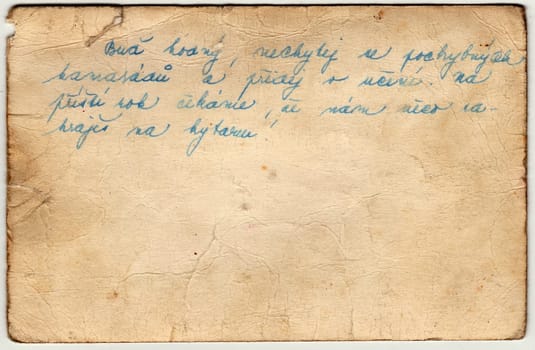 Buď hodný, nechytej se pochybných
kamarádů a přidej v učení. Na
příští rok čekáme, že nám něco za-
hraješ na kytaru!